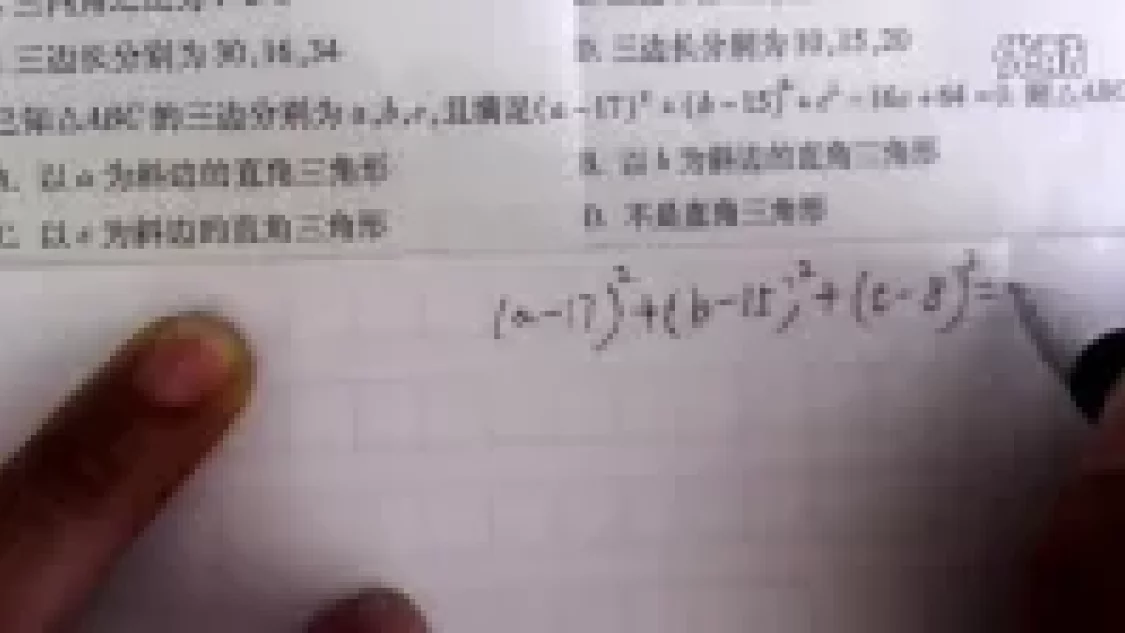 三边长分别为30,16,34
D. 三边长分别为10,15,20
已知△ABC的三边分别为a,b,c,且满足(a-17)²+(b-15)²+c²-16c+64=0,则△ABC
A. 以a为斜边的直角三角形
B. 以b为斜边的直角三角形
C. 以c为斜边的直角三角形
D. 不是直角三角形
(a-17)²+(b-15)²+(c-8)²=